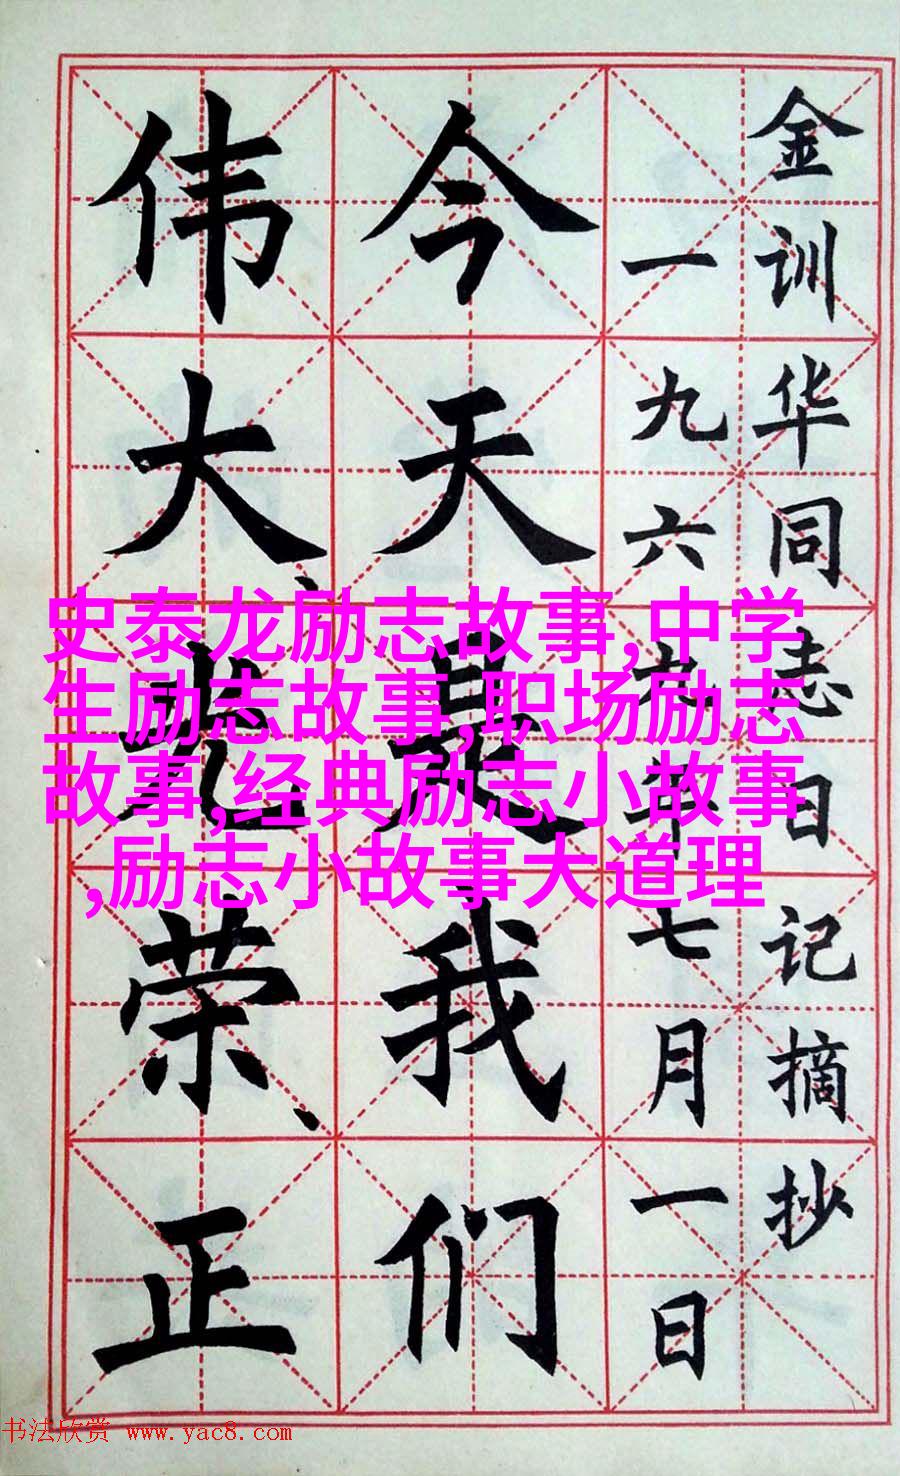 金训华同志日记摘抄
一九六九年七月一日
今天是我们
伟大、光荣、正
史泰龙励志故事,中学
生励志故事,职场励志
故事,经典励志小故事
,励志小故事大道理
书法欣赏 www.yac8.com